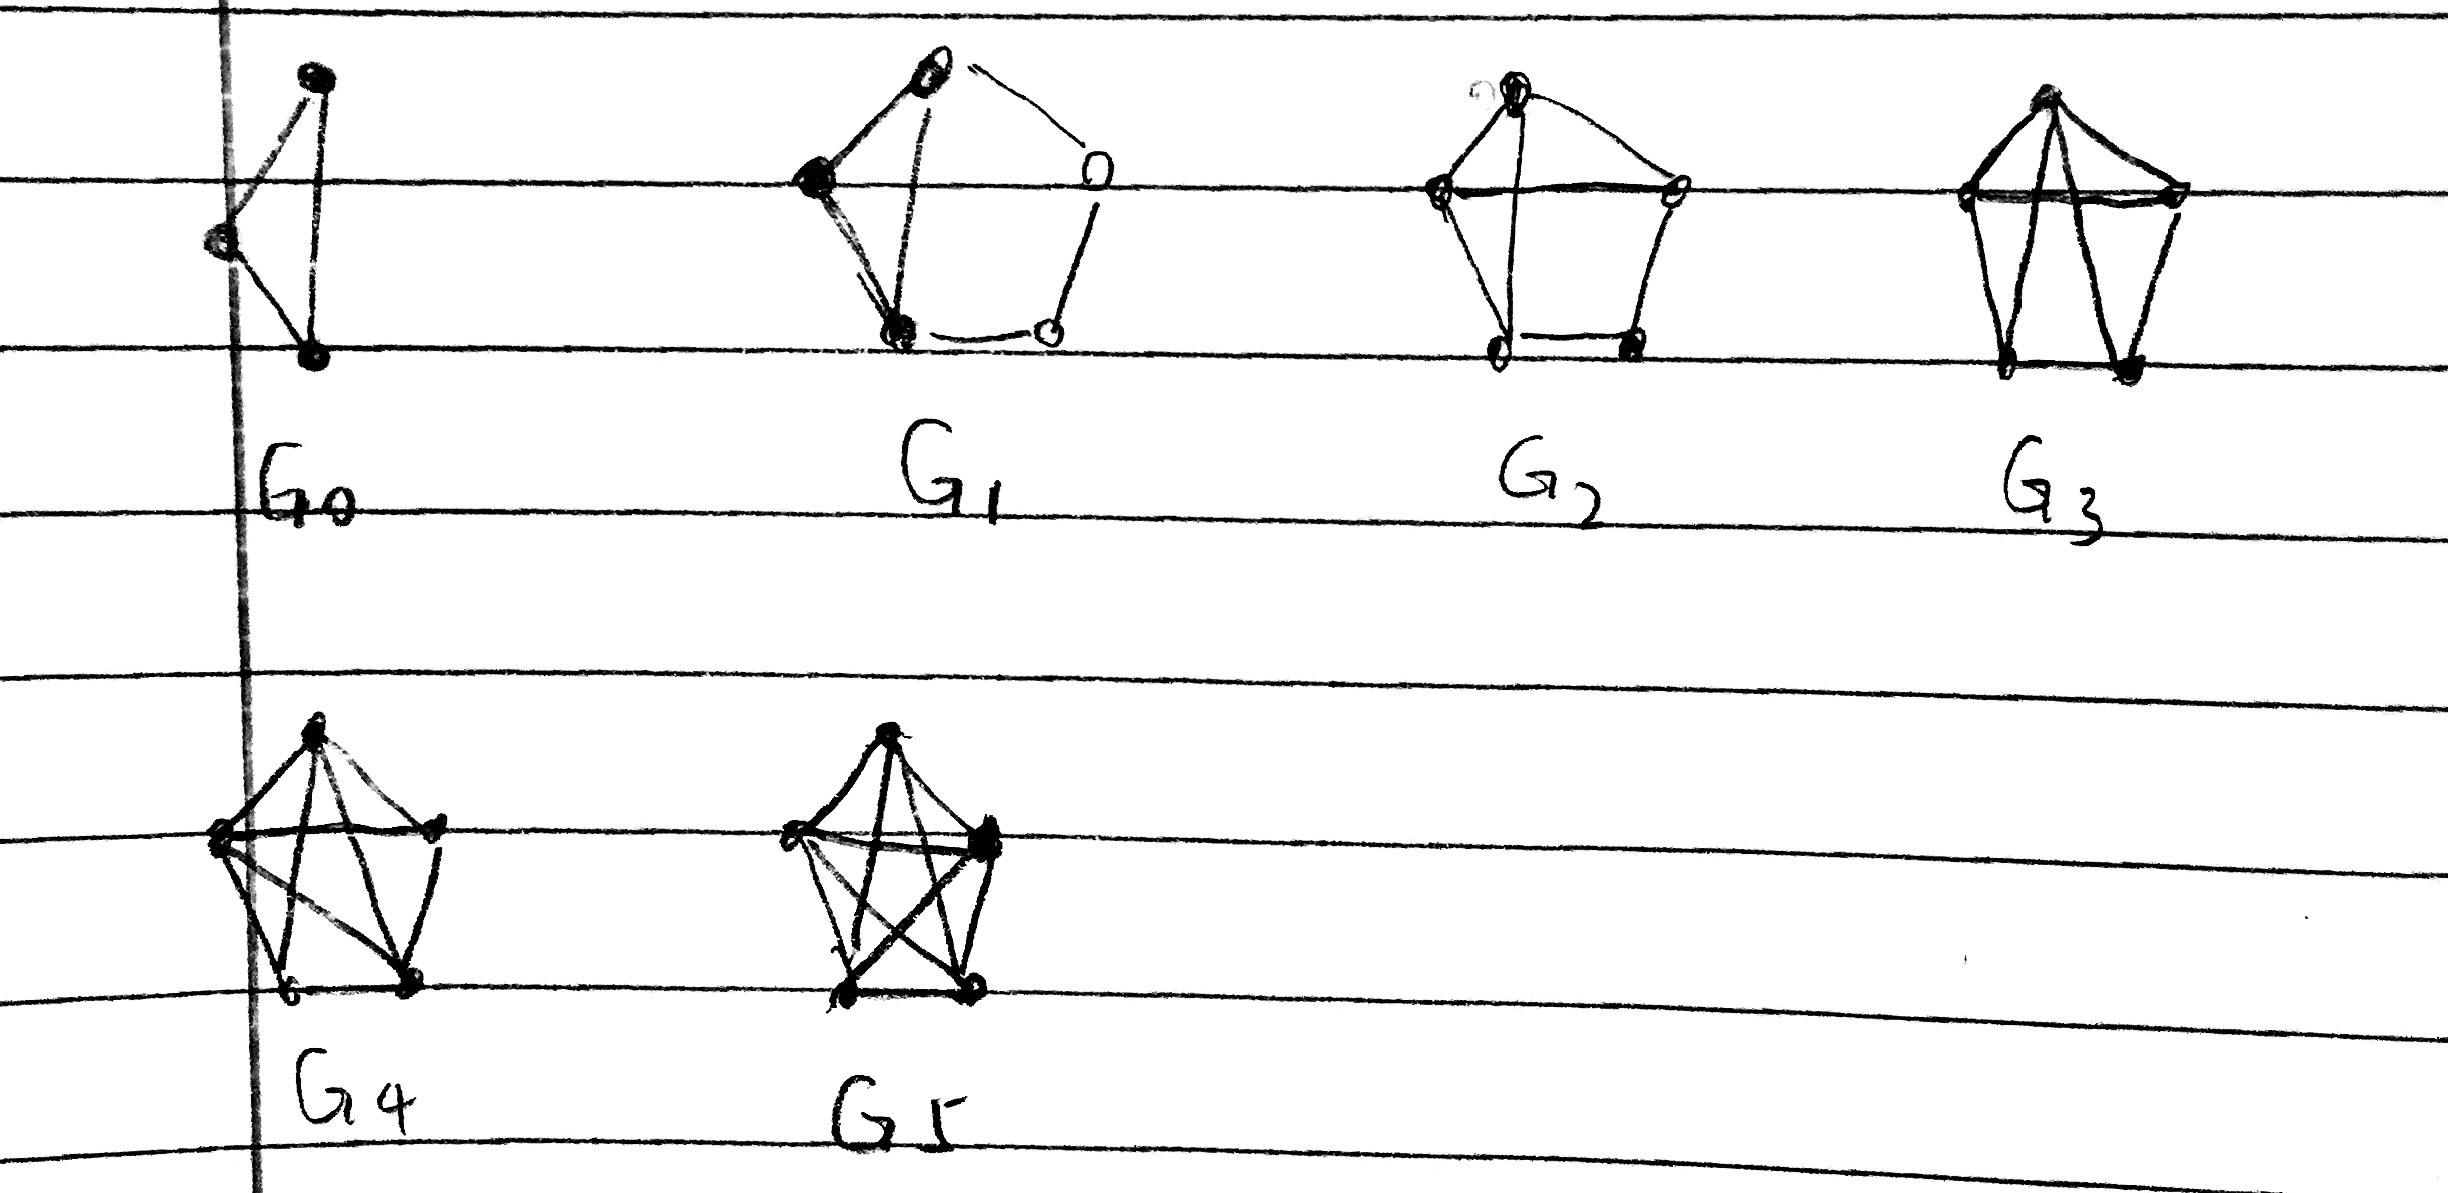 G0 G1 G2 G3
G4 G5